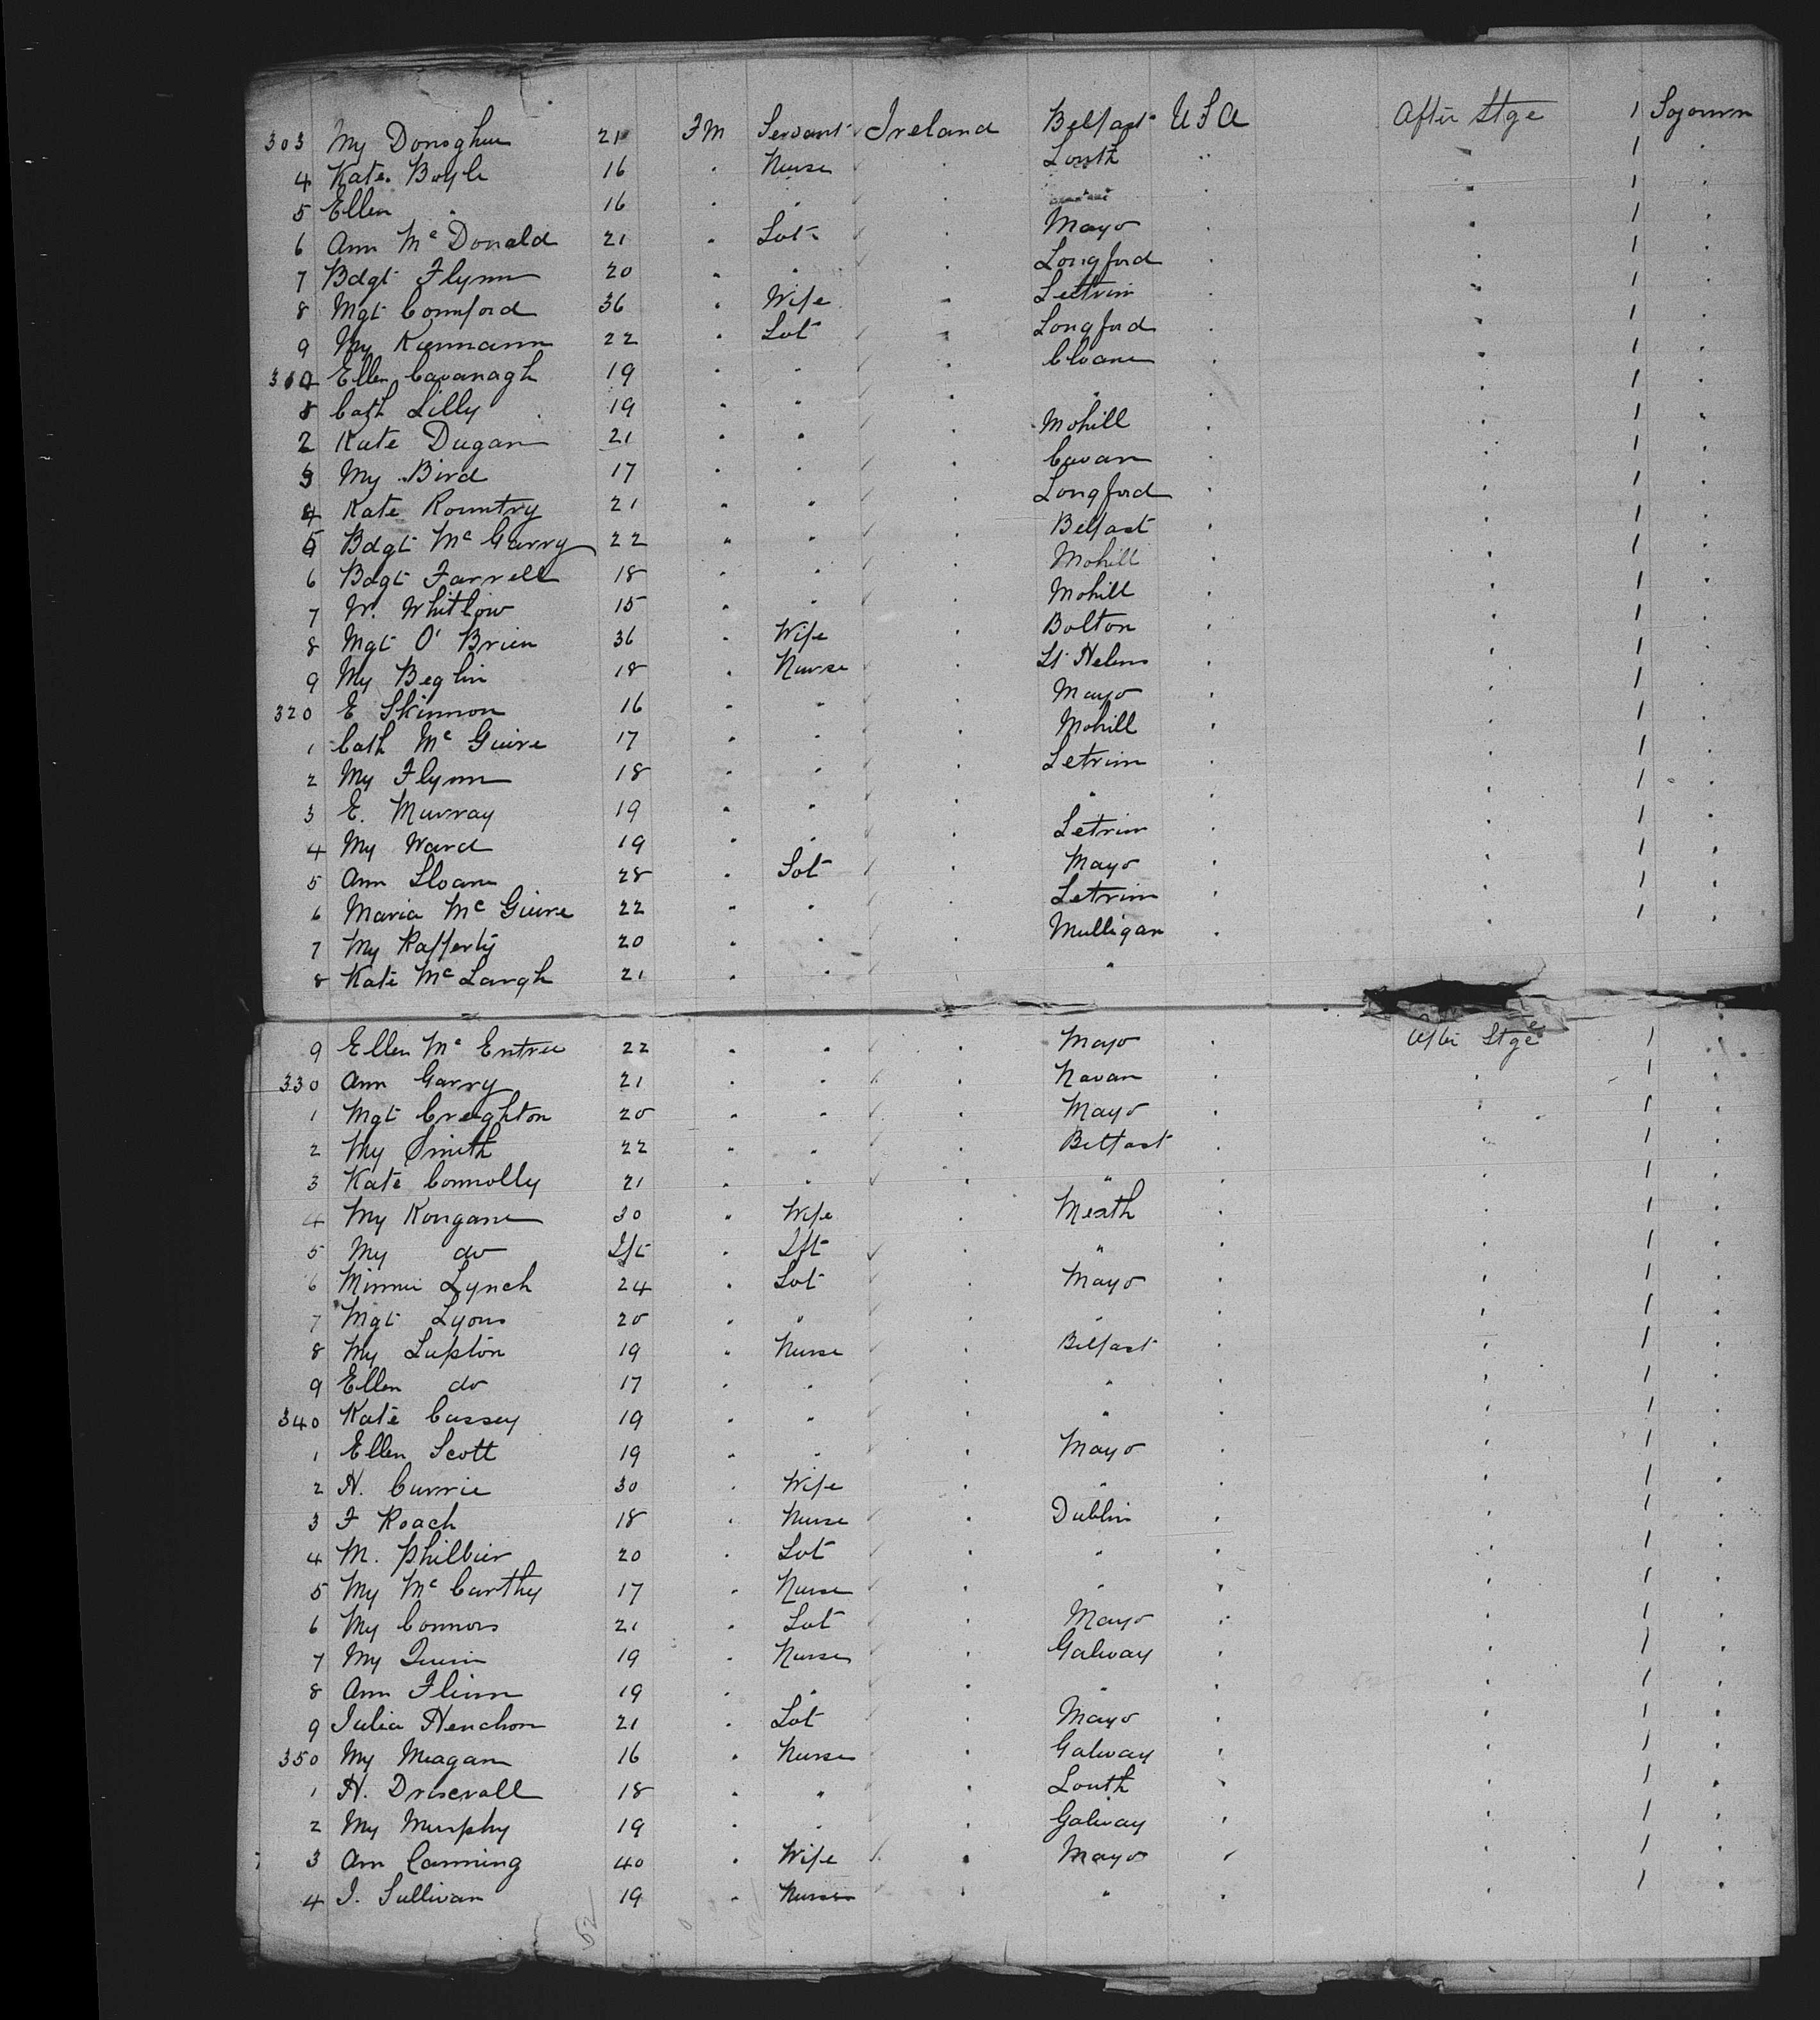 303 My Donoghue 21 FM Servant Ireland Belfast USA After Stge 1 Sojourn
4 Kate Boyle 16 " Nurse " Louth " " 1 "
5 Ellen " 16 " " " " " 1 "
6 Ann Mc Donald 21 " Svt " Mayo " " 1 "
7 Bdgt Flynn 20 " " " Longford " " 1 "
8 Mgt Comford 36 " Wife " Leitrim " " 1 "
9 My Kiernann 22 " Svt " Longford " " 1 "
310 Ellen Cavanagh 19 " " " Cloane " " 1 "
Cath Lilly 19 " " " " " " 1 "
2 Kate Dugan 21 " " " Mohill " " 1 "
3 My Bird 17 " " " Cavan " " 1 "
4 Kate Rountry 21 " " " Longford " " 1 "
5 Bdgt Mc Garry 22 " " " Belfast " " 1 "
6 Bdgt Farrell 18 " " " Mohill " " 1 "
7 W. Whitlow 15 " " " Mohill " " 1 "
8 Mgt O' Brien 36 " Wife " Bolton " " 1 "
9 My Beglin 18 " Nurse " St Helens " " 1 "
320 E Skinnon 16 " " " Mayo " " 1 "
1 Cath Mc Guire 17 " " " Mohill " " 1 "
2 My Flynn 18 " " " Letrim " " 1 "
3 E. Murray 19 " " " " " " 1 "
4 My Ward 19 " " " Letrim " " 1 "
5 Ann Sloane 28 " Svt " Mayo " " 1 "
6 Maria Mc Guire 22 " " " Letrim " " 1 "
7 My Rafferty 20 " " " Mulligan " " 1 "
8 Kate Mc Largh 21 " " " "
9 Ellen Mc Entree 22 " " " Mayo " After Stge 1 "
330 Ann Garry 21 " " " Navan " " 1 "
1 Mgt Creighton 20 " " " Mayo " " 1 "
2 My Smith 22 " " " Belfast " " 1 "
3 Kate Connolly 21 " " " " " " 1 "
4 My Rongane 30 " Wife " Meath " " 1 "
5 My do Ift " Ift " " " " 1 "
6 Minnie Lynch 24 " Svt " Mayo " " 1 "
7 Mgt Lyons 20 " " " " " " 1 "
8 My Lupton 19 " Nurse " Belfast " " 1 "
9 Ellen do 17 " " " " " " 1 "
340 Kate Cassey 19 " " " " " " 1 "
1 Ellen Scott 19 " " " Mayo " " 1 "
2 H. Currie 30 " Wife " " " " 1 "
3 F Roach 18 " Nurse " Dublin " " 1 "
4 M. Philbin 20 " Svt " " " " 1 "
5 My Mc Carthy 17 " Nurse " " " " 1 "
6 My Connors 21 " Svt " Mayo " " 1 "
7 My Quinn 19 " Nurse " Galway " " 1 "
8 Ann Flinn 19 " " " " " " 1 "
9 Julia Henchon 21 " Svt " Mayo " " 1 "
350 My Meagan 16 " Nurse " Galway " " 1 "
1 H. Driscroll 18 " " " Louth " " 1 "
2 My Murphy 19 " " " Galway " " 1 "
3 Ann Canning 40 " Wife " Mayo " " 1 "
4 J. Sullivan 19 " Nurse " " " " 1 "
52